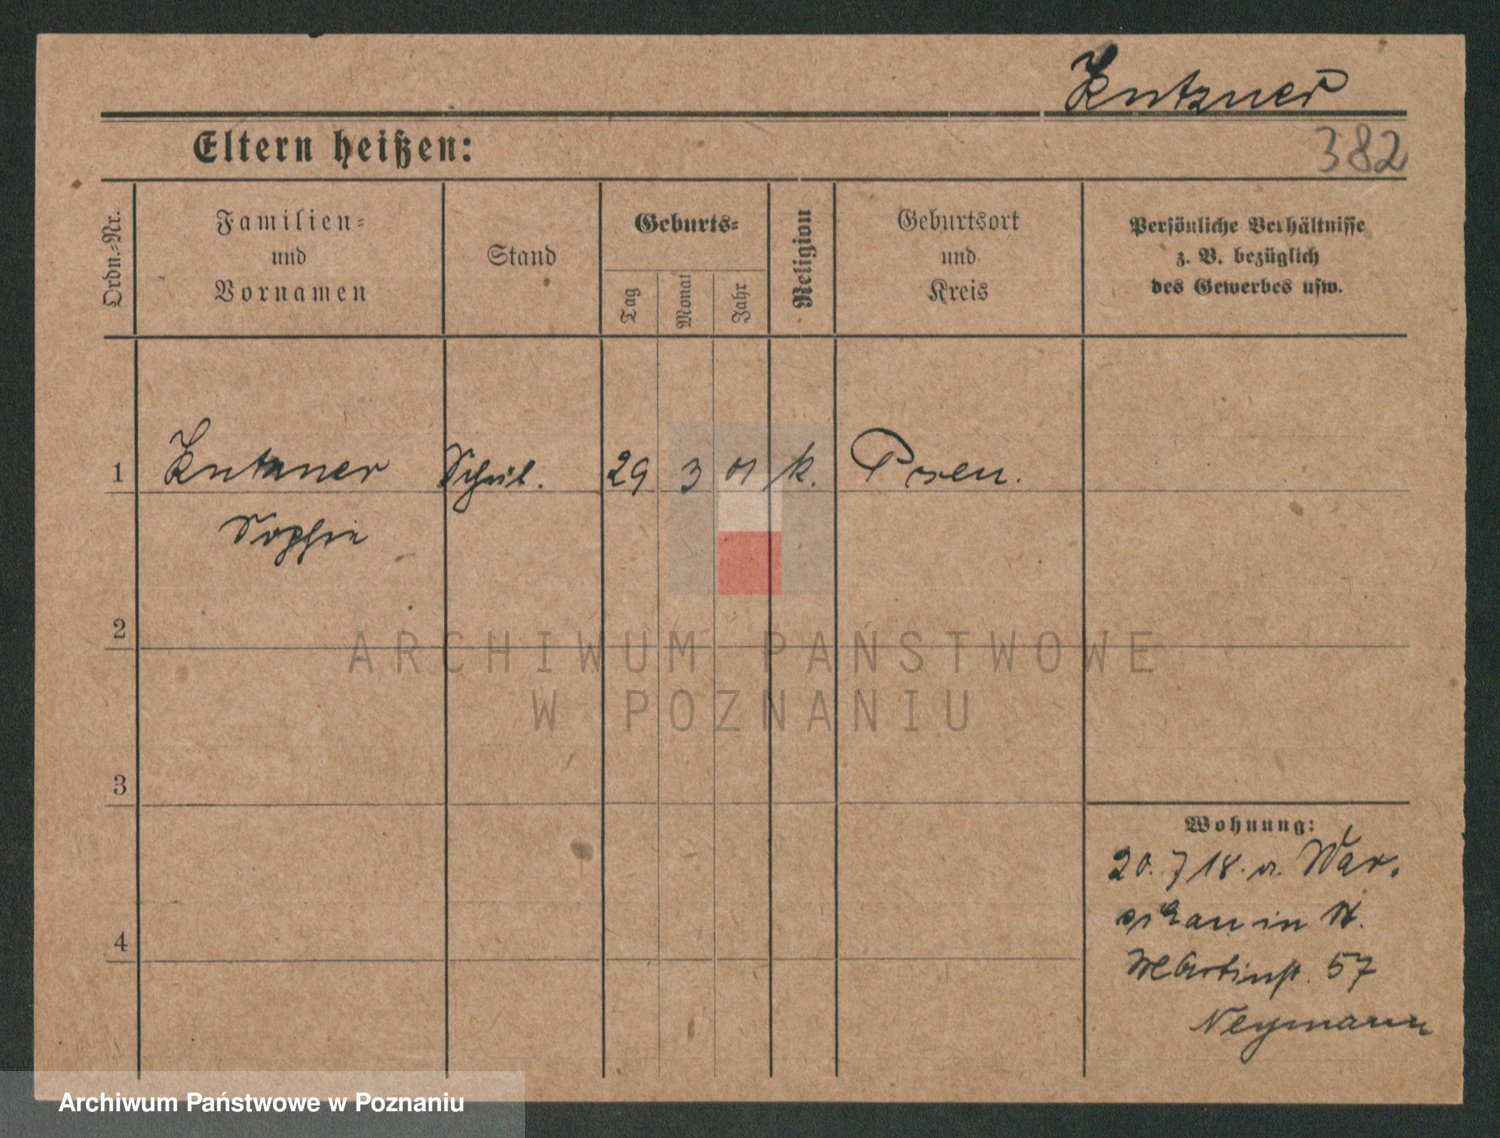 Kutzner
Eltern heißen:
382
Ordn.-Nr.
Familien-
und
Vornamen
Stand
Geburts-
Tag
Monat
Jahr
Religion
Geburtsort
und
Kreis
Persönliche Verhältnisse
z. B. bezüglich
des Gewerbes usw.
1 Kutzner Schül. 29 3 01 k. Posen.
Sophie
2
3
4
Wohnung:
20. 7 18. v. War-
schau in St.
Martinst. 57
Neymann
ARCHIWUM PAŃSTWOWE
W POZNANIU
Archiwum Państwowe w Poznaniu